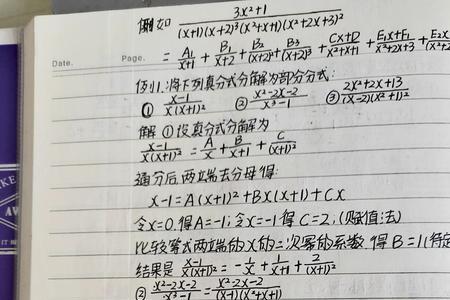 例如 3x²+1/(x+1)(x+2)³(x²+x+1)(x²+2x+3)²
= A₁/x+1 + B₁/x+2 + B₂/(x+2)² + B₃/(x+2)³ + Cx+D/x²+x+1 + E₁x+F₁/x²+2x+3 + E₂x+F₂/(x²+2
Date. Page.
例1.将下列真分式分解为部分分式:
① x-1/x(x+1)² ② x²-2x-2/x³-1 ③ 2x²+2x+13/(x-2)(x²+1)²
解 ①设真分式分解为
x-1/x(x+1)² = A/x + B/x+1 + C/(x+1)²
通分后,两端去分母得:
x-1=A(x+1)²+Bx(x+1)+Cx
令x=0.得A=-1,令x=-1得C=2,(赋值法)
比较等式两端的x的二次幂的系数 得B=1(待定
结果是 x-1/x(x+1)² = -1/x + 1/x+1 + 2/(x+1)²
② x²-2x-2/x³-1 = x²-2x-2/(x-1)(x²+x+1)